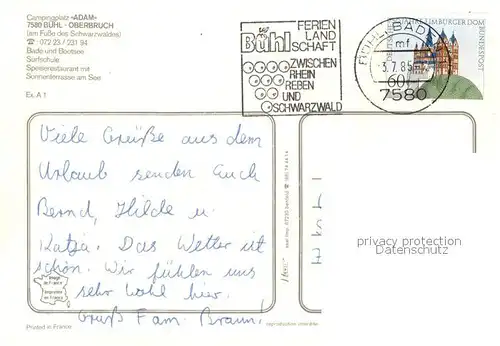 Campingplatz »ADAM«
7580 BÜHL - OBERBRUCH
(am Fuße des Schwarzwaldes)
☎ : 072 23 / 231 94
Bade und Bootsee
Surfschule
Speiserestaurant mit
Sonnenterrasse am See
Ex. A 1
Bühl
FERIEN
LAND
SCHAFT
ZWISCHEN
RHEIN
REBEN
UND
SCHWARZWALD
BÜHL, BADEN
mf
-3.7.85-
7580
LIMBURGER DOM
60
DEUTSCHE BUNDESPOST
Viele Grüße aus dem
Urlaub senden Euch
Bernd, Hilde u.
Katja. Das Wetter ist
schön. Wir fühlen uns
sehr wohl hier.
Gruß Fam. Braun!
image
de France
Imprimé
en France
Printed in France
privacy protection
Datenschutz